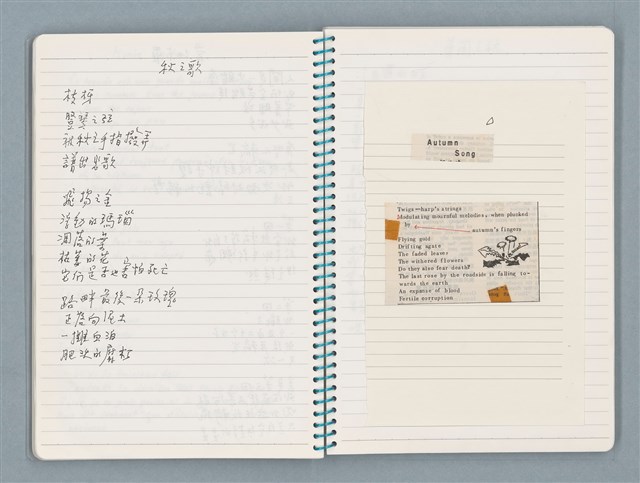 秋之歌
枝椏
豎琴之弦
被秋之手指撥弄
譜出哀歌
飛揚之金
浮動的瑪瑙
凋落的葉
枯萎的花
它們是否也害怕死亡
路畔最後一朵玫瑰
正落向泥土
一攤血泊
肥沃的腐朽
Autumn
Song
Twigs—harp's strings
Modulating mournful melodies, when plucked
by
autumn's fingers
Flying gold
Drifting agate
The faded leaves
The withered flowers
Do they also fear death?
The last rose by the roadside is falling to-
wards the earth
An expanse of blood
Fertile corruption